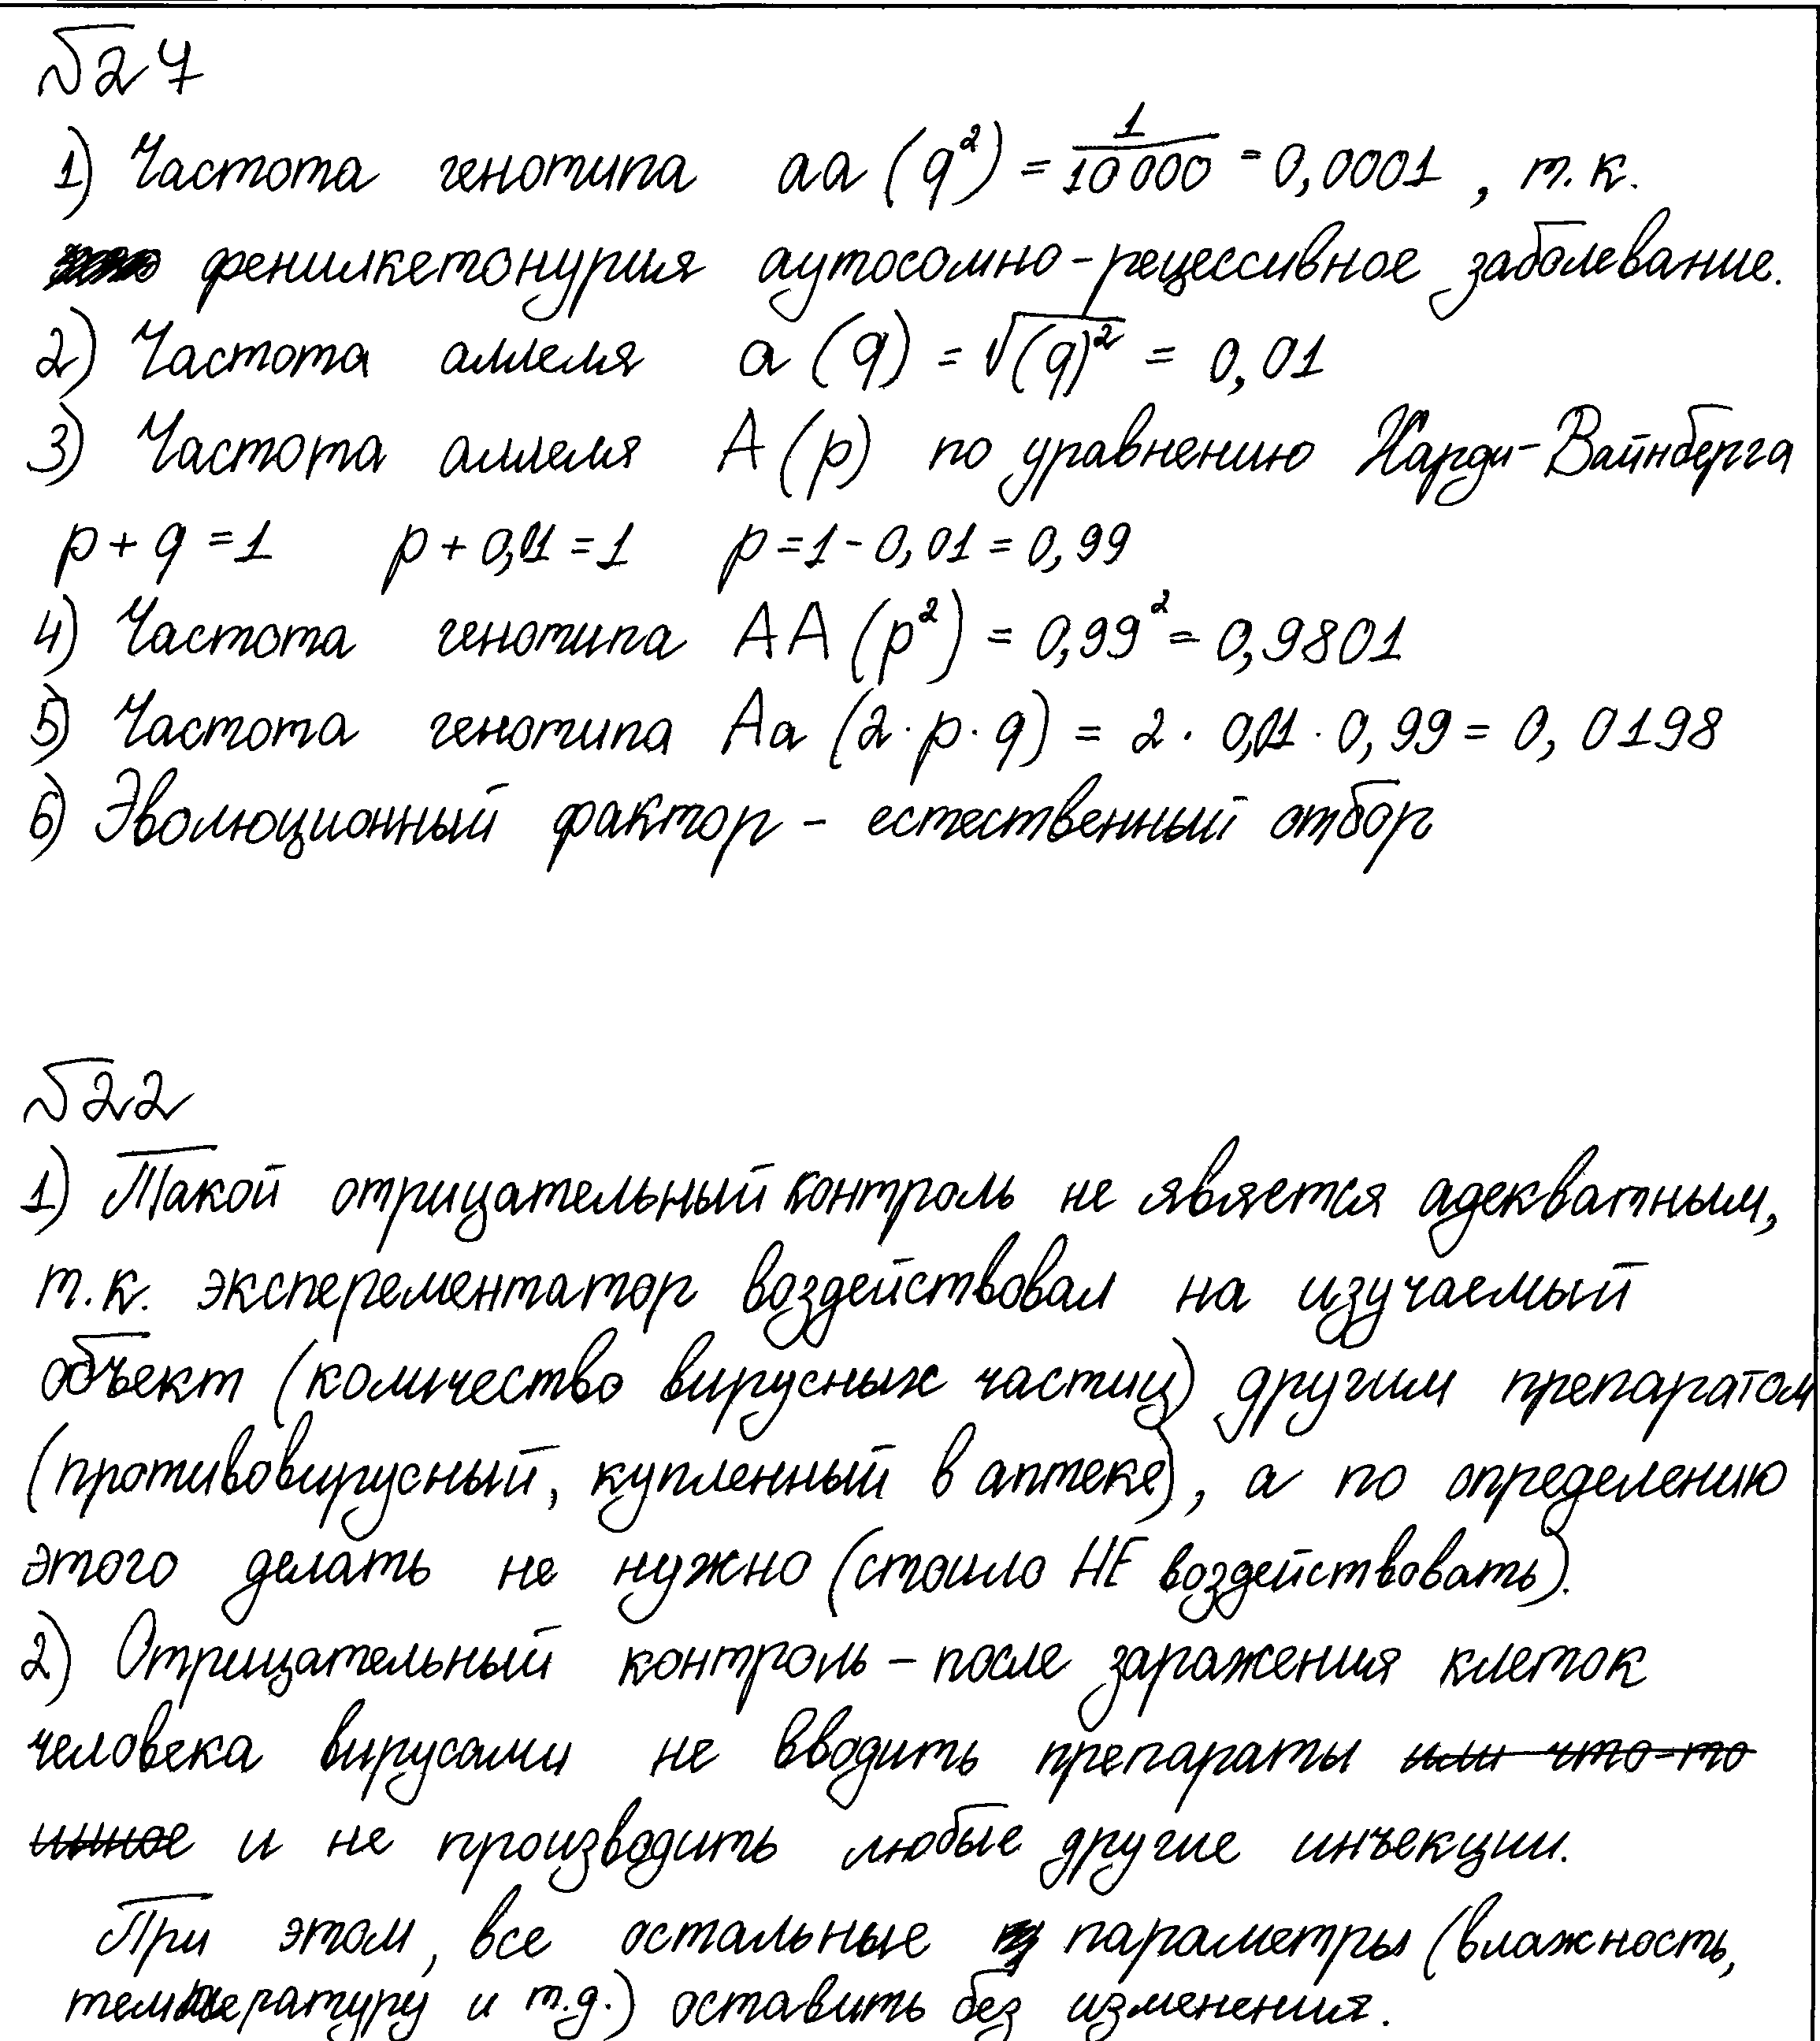 №27
1) Частота генотипа aa (q²) = 1/10 000 = 0,0001 , т.к.
фенилкетонурия аутосомно-рецессивное заболевание.
2) Частота аллеля a (q) = √(q)² = 0,01
3) Частота аллеля A (p) по уравнению Харди-Вайнберга
p + q = 1 p + 0,01 = 1 p = 1 - 0,01 = 0,99
4) Частота генотипа AA (p²) = 0,99² = 0,9801
5) Частота генотипа Aa (2·p·q) = 2 · 0,01 · 0,99 = 0,0198
6) Эволюционный фактор - естественный отбор
№22
1) Такой отрицательный контроль не является адекватным,
т.к. эксперементатор воздействовал на изучаемый
объект (количество вирусных частиц) другим препаратом
(противовирусный, купленный в аптеке), а по определению
этого делать не нужно (стоило НЕ воздействовать).
2) Отрицательный контроль - после заражения клеток
человека вирусами не вводить препараты или что-то
инное и не производить любые другие инъекции.
При этом, все остальные параметры (влажность,
температуру и т.д.) оставить без изменения.